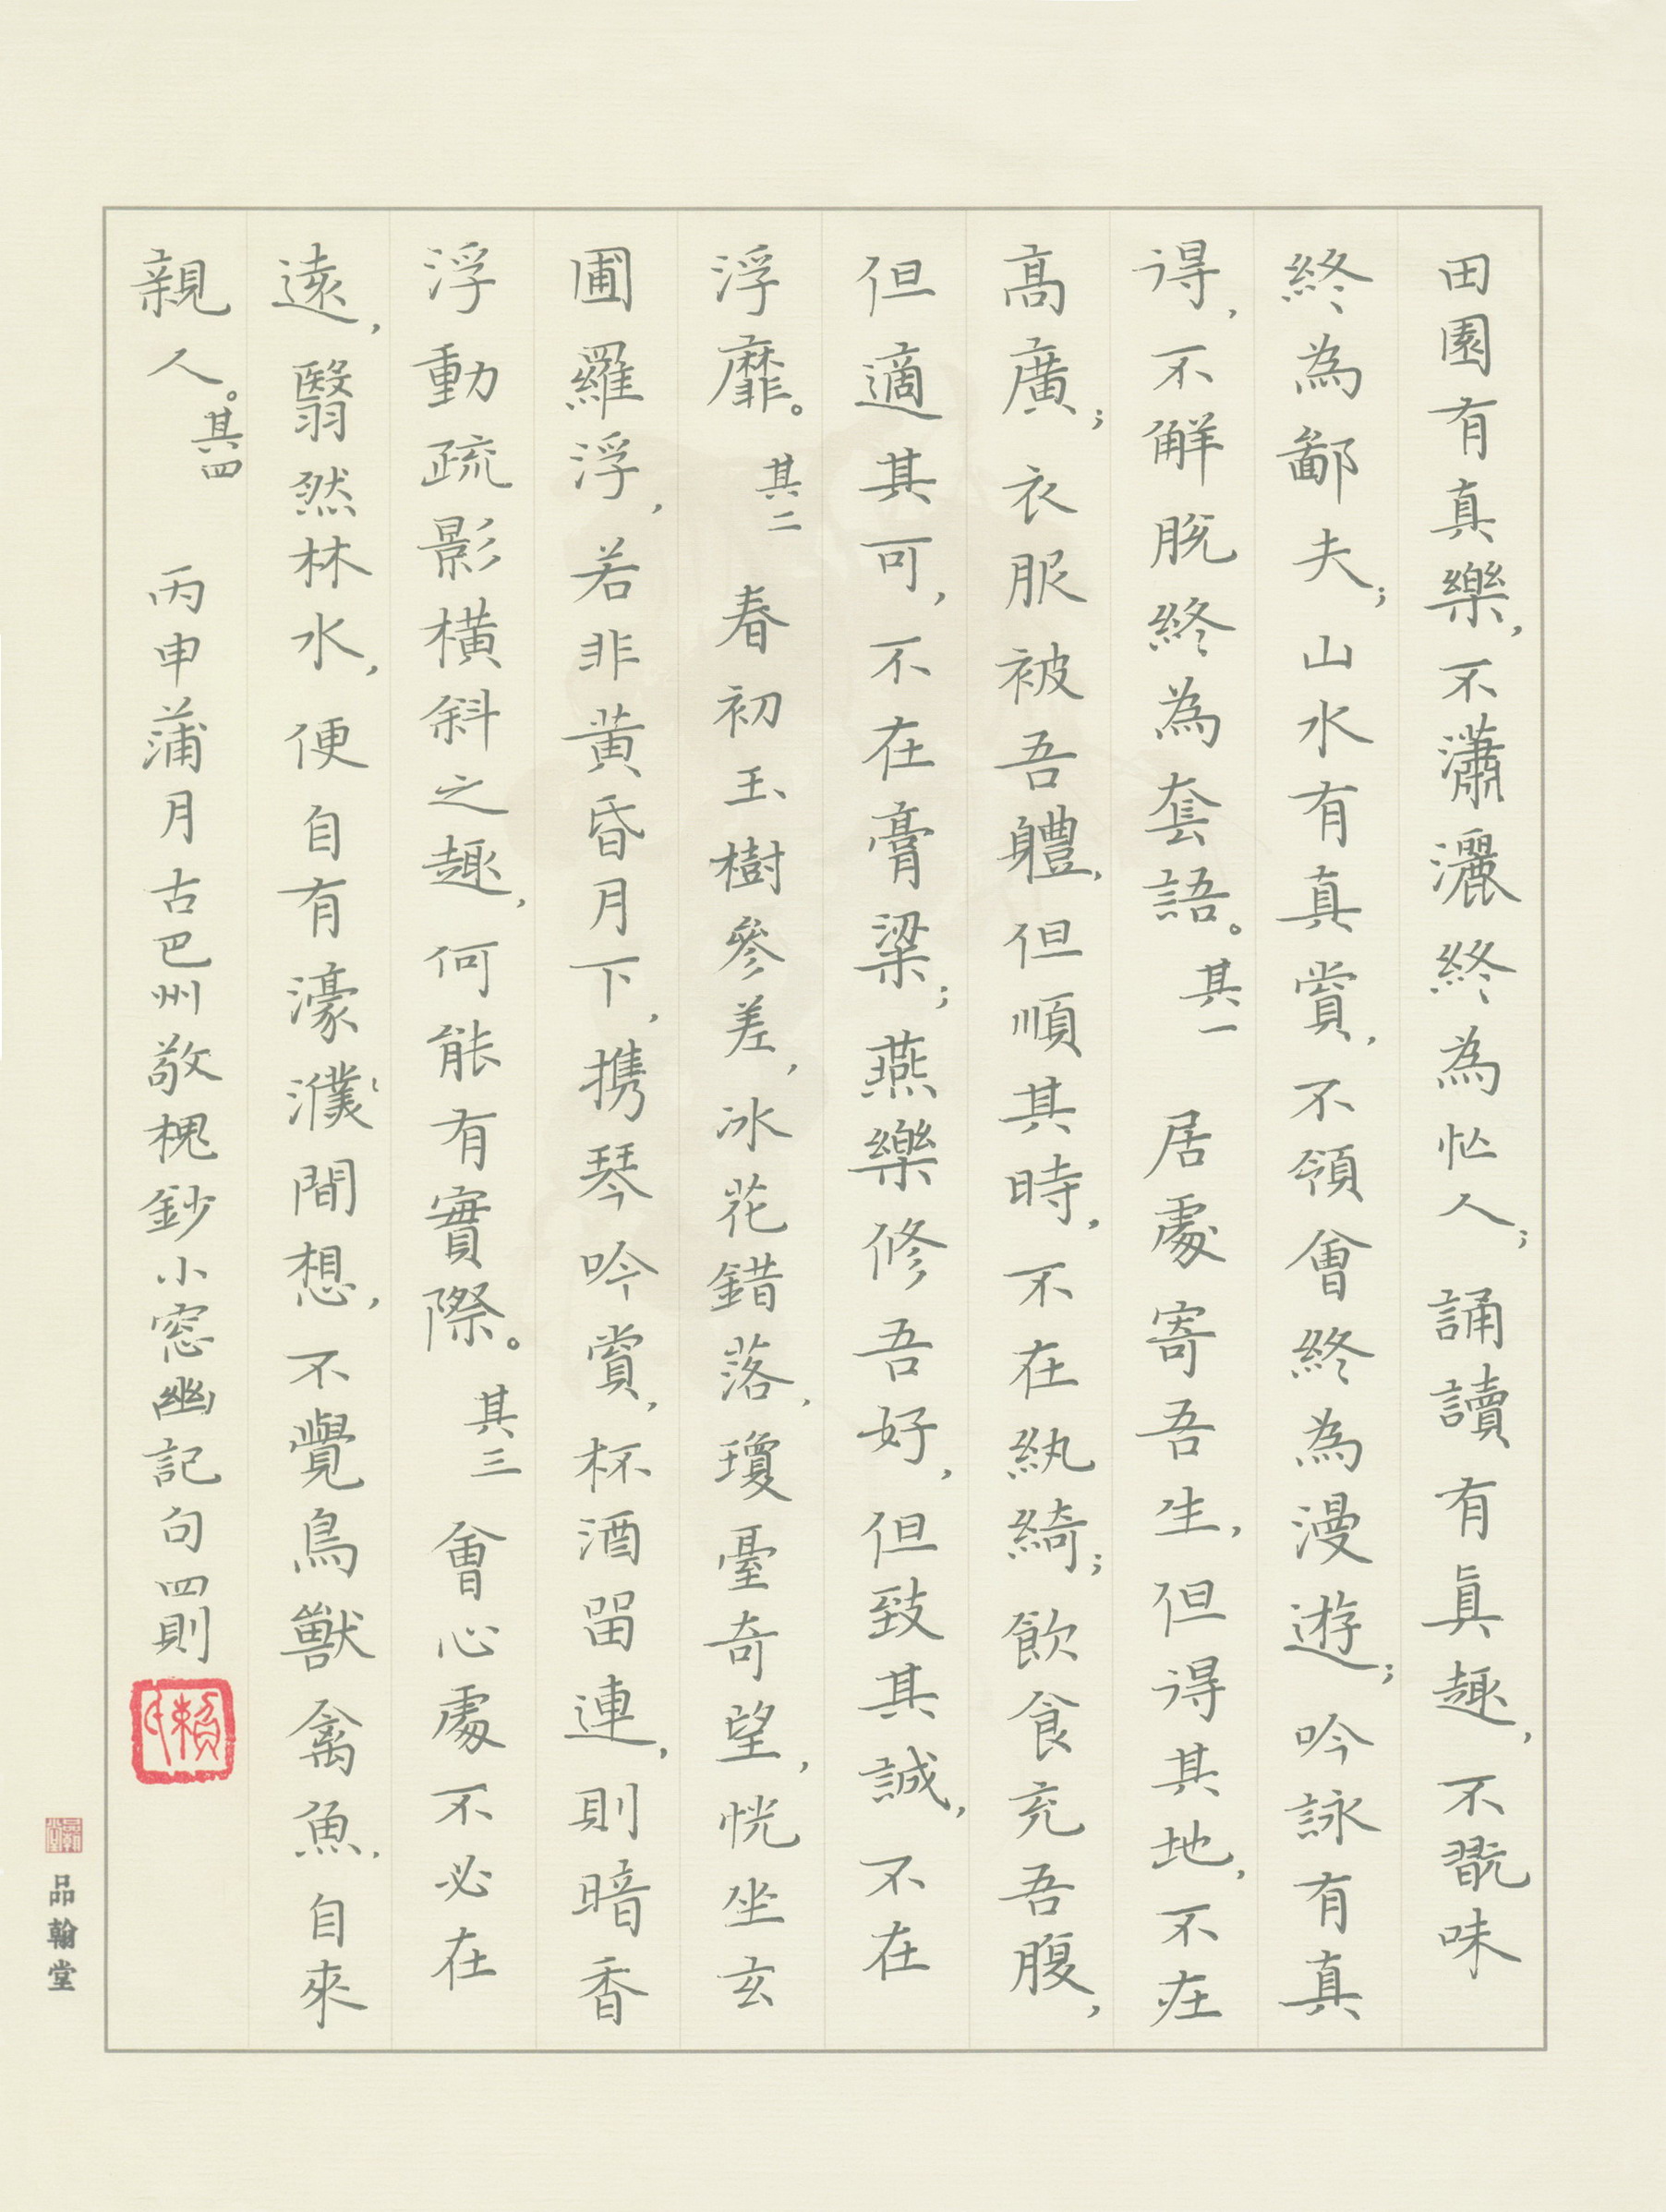 田園有真樂,不瀟灑終為忙人;誦讀有眞趣,不翫味
終為鄙夫;山水有真賞,不領會終為漫遊;吟詠有真
得,不解脫終為套語。其一 居處寄吾生,但得其地,不在
高廣;衣服被吾軆,但順其時,不在紈綺;飲食充吾腹,
但適其可,不在膏粱;燕樂修吾好,但致其誠,不在
浮靡。其二 春初玉樹參差,冰花錯落,瓊臺奇望,恍坐玄
圃羅浮,若非黃昏月下,携琴吟賞,杯酒留連,則暗香
浮動疏影橫斜之趣,何能有實際。其三 會心處不必在
遠,翳然林水,便自有濠濮間想,不覺鳥獸禽魚,自來
親人。其四 丙申蒲月古巴州敬槐鈔小窓幽記句四則
品翰堂